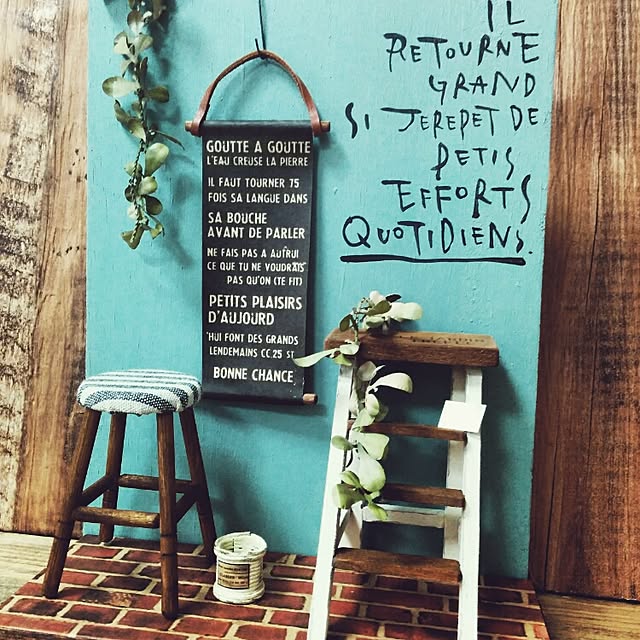 GOUTTE A GOUTTE
L'EAU CREUSE LA PIERRE
IL FAUT TOURNER 75
FOIS SA LANGUE DANS
SA BOUCHE
AVANT DE PARLER
NE FAIS PAS A AUTRUI
CE QUE TU NE VOUDRAIS
PAS QU'ON (TE FIT)
PETITS PLAISIRS
D'AUJOURD
'HUI FONT DES GRANDS
LENDEMAINS CC.25 ST
BONNE CHANCE.
IL
RETOURNE
GRAND
SI JEREPET DE
PETIS
EFFORTS
QUOTIDIENS.